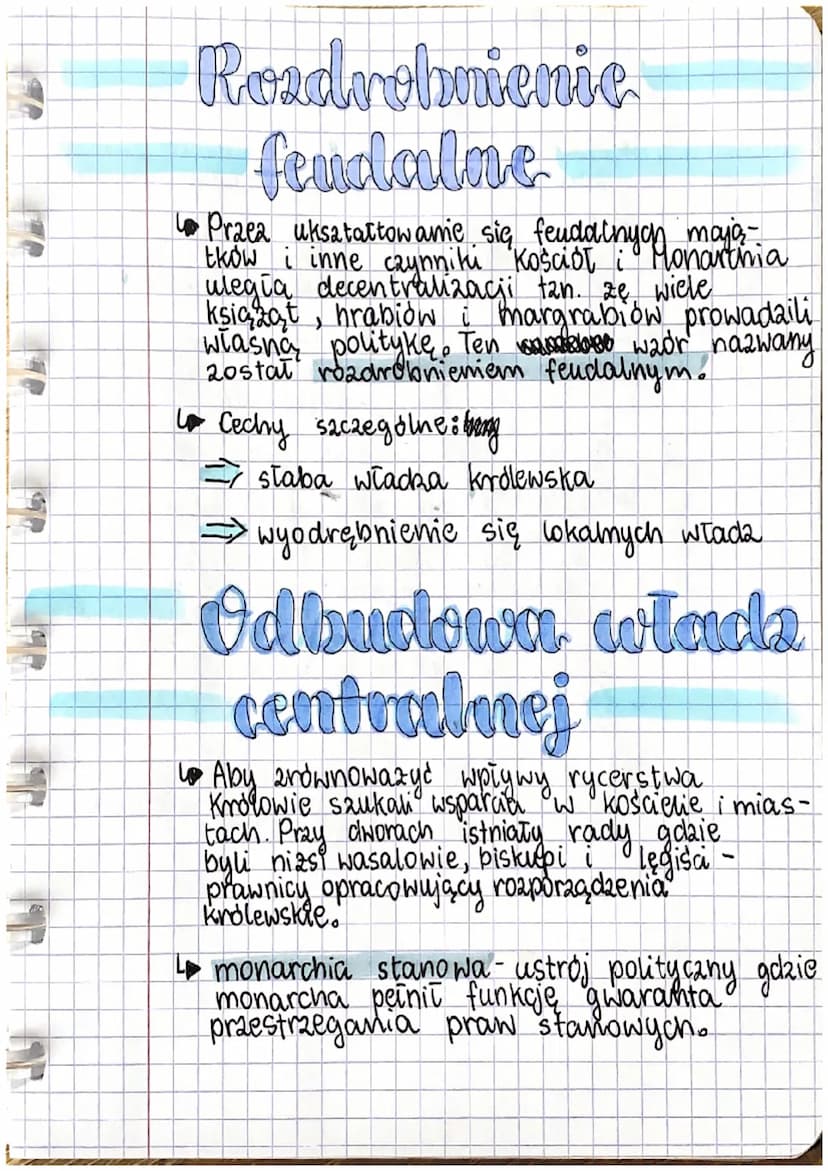 Rozdrobnienie
feudalne
↳ Przez ukształtowanie się feudalnych mają-
tków i inne czynniki Kościół i Monarchia
uległa decentralizacji tzn. że wiele
książąt, hrabiów i margrabiów prowadzili
własną politykę. Ten wzór nazwany
został rozdrobnieniem feudalnym.
↳ Cechy szczególne:
⇒ słaba władza królewska
⇒ wyodrębnienie się lokalnych władz
Odbudowa władz
centralnej
↳ Aby zrównoważyć wpływy rycerstwa
Królowie szukali wsparcia w kościele i mias-
tach. Przy dworach istniały rady gdzie
byli niżsi wasalowie, biskupi i legiści -
prawnicy opracowujący rozporządzenia
królewskie.
↳ monarchia stanowa - ustrój polityczny gdzie
monarcha pełnił funkcję gwaranta
przestrzegania praw stanowych.